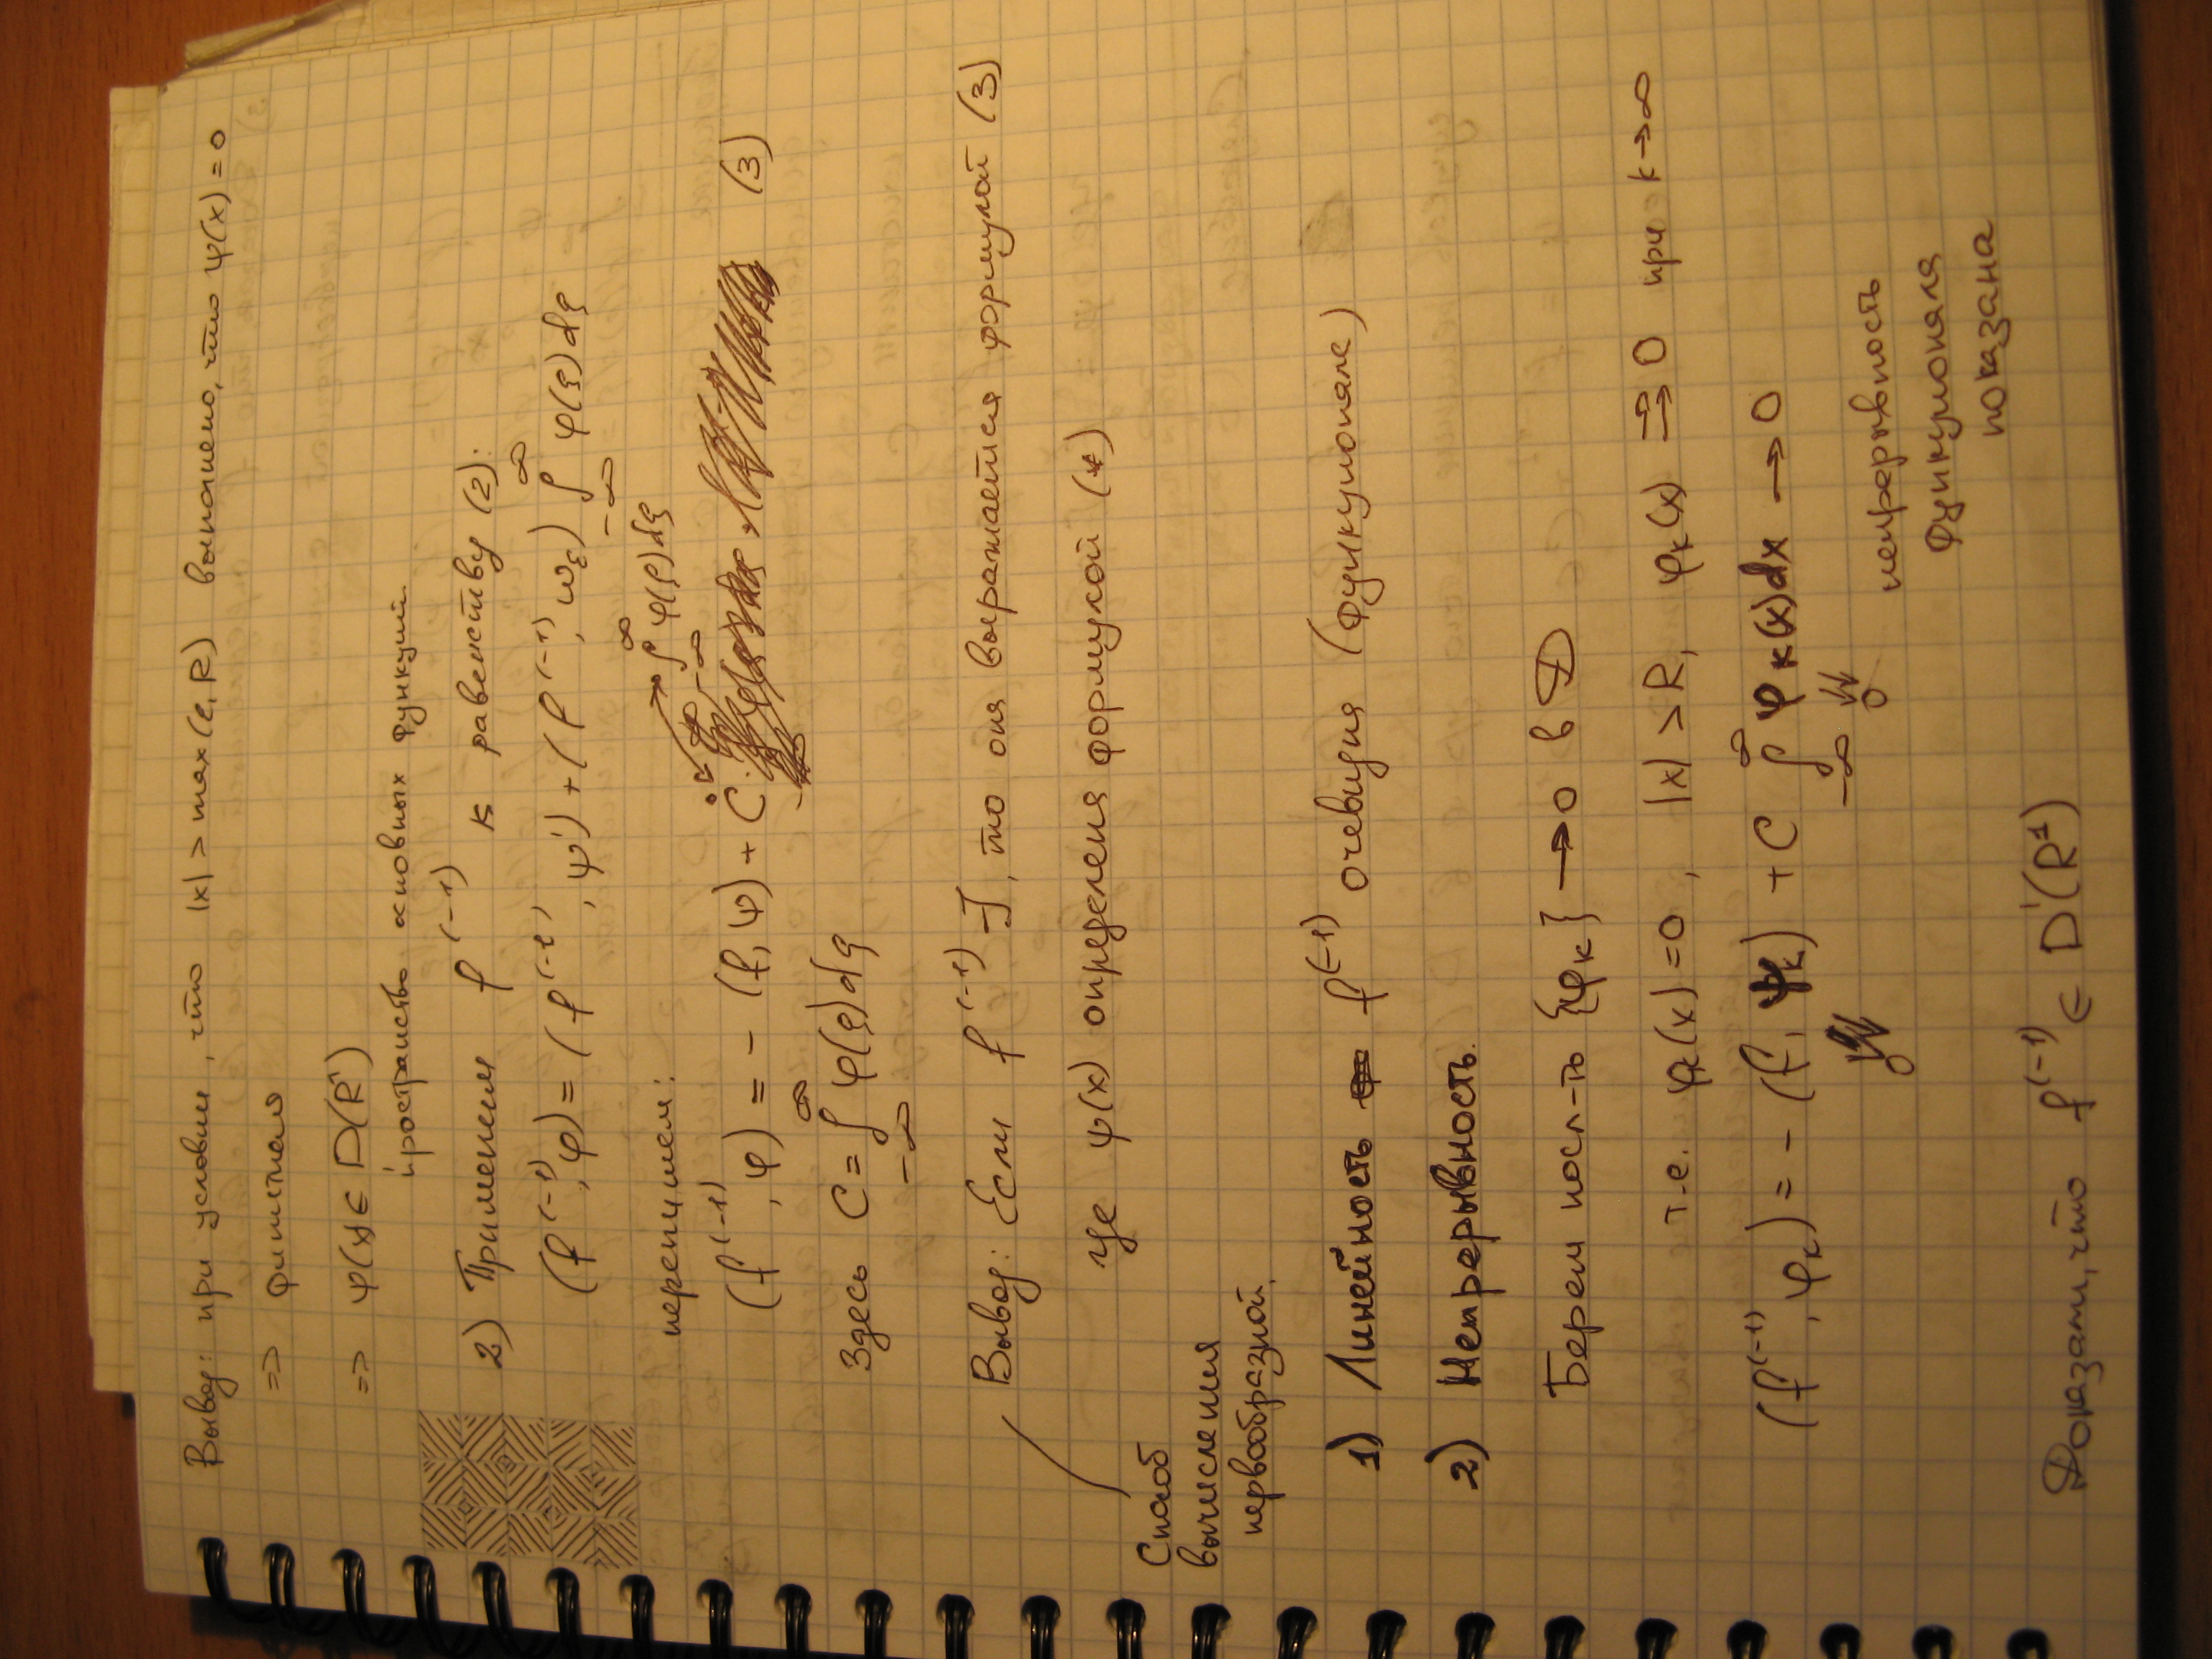 Вывод: при условии, что |x| > max(ε, R) выполнено, что ψ(x) = 0
=> финитная
=> ψ(x) ∈ D(R¹)
пространство основных функций.
2) Применяем f⁽⁻¹⁾ к равенству (2):
(f⁽⁻¹⁾, φ) = (f⁽⁻¹⁾, ψ') + (f⁽⁻¹⁾, ω_ε) ∫_{-∞}^{∞} φ(ξ)dξ
перепишем:
(f⁽⁻¹⁾, φ) = - (f, ψ) + C · ∫_{-∞}^{∞} φ(ξ)dξ (3)
Здесь C = ∫_{-∞}^{∞} φ(ξ)dξ
Вывод: Если f⁽⁻¹⁾ ∃, то она выражается формулой (3)
где ψ(x) определена формулой (*)
Способ
вычисления
первообразной.
1) Линейность f⁽⁻¹⁾ очевидна (функционале)
2) Непрерывность.
Берем посл-ть {φₖ} → 0 в D
т.е. φₖ(x) = 0, |x| > R, φₖ(x) ⇉ 0 при k→∞
(f⁽⁻¹⁾, φₖ) = - (f, ψₖ) + C ∫_{-∞}^{∞} φₖ(x)dx → 0
0 0
непрерывность
функционала
показана
Доказали, что f⁽⁻¹⁾ ∈ D'(R¹)